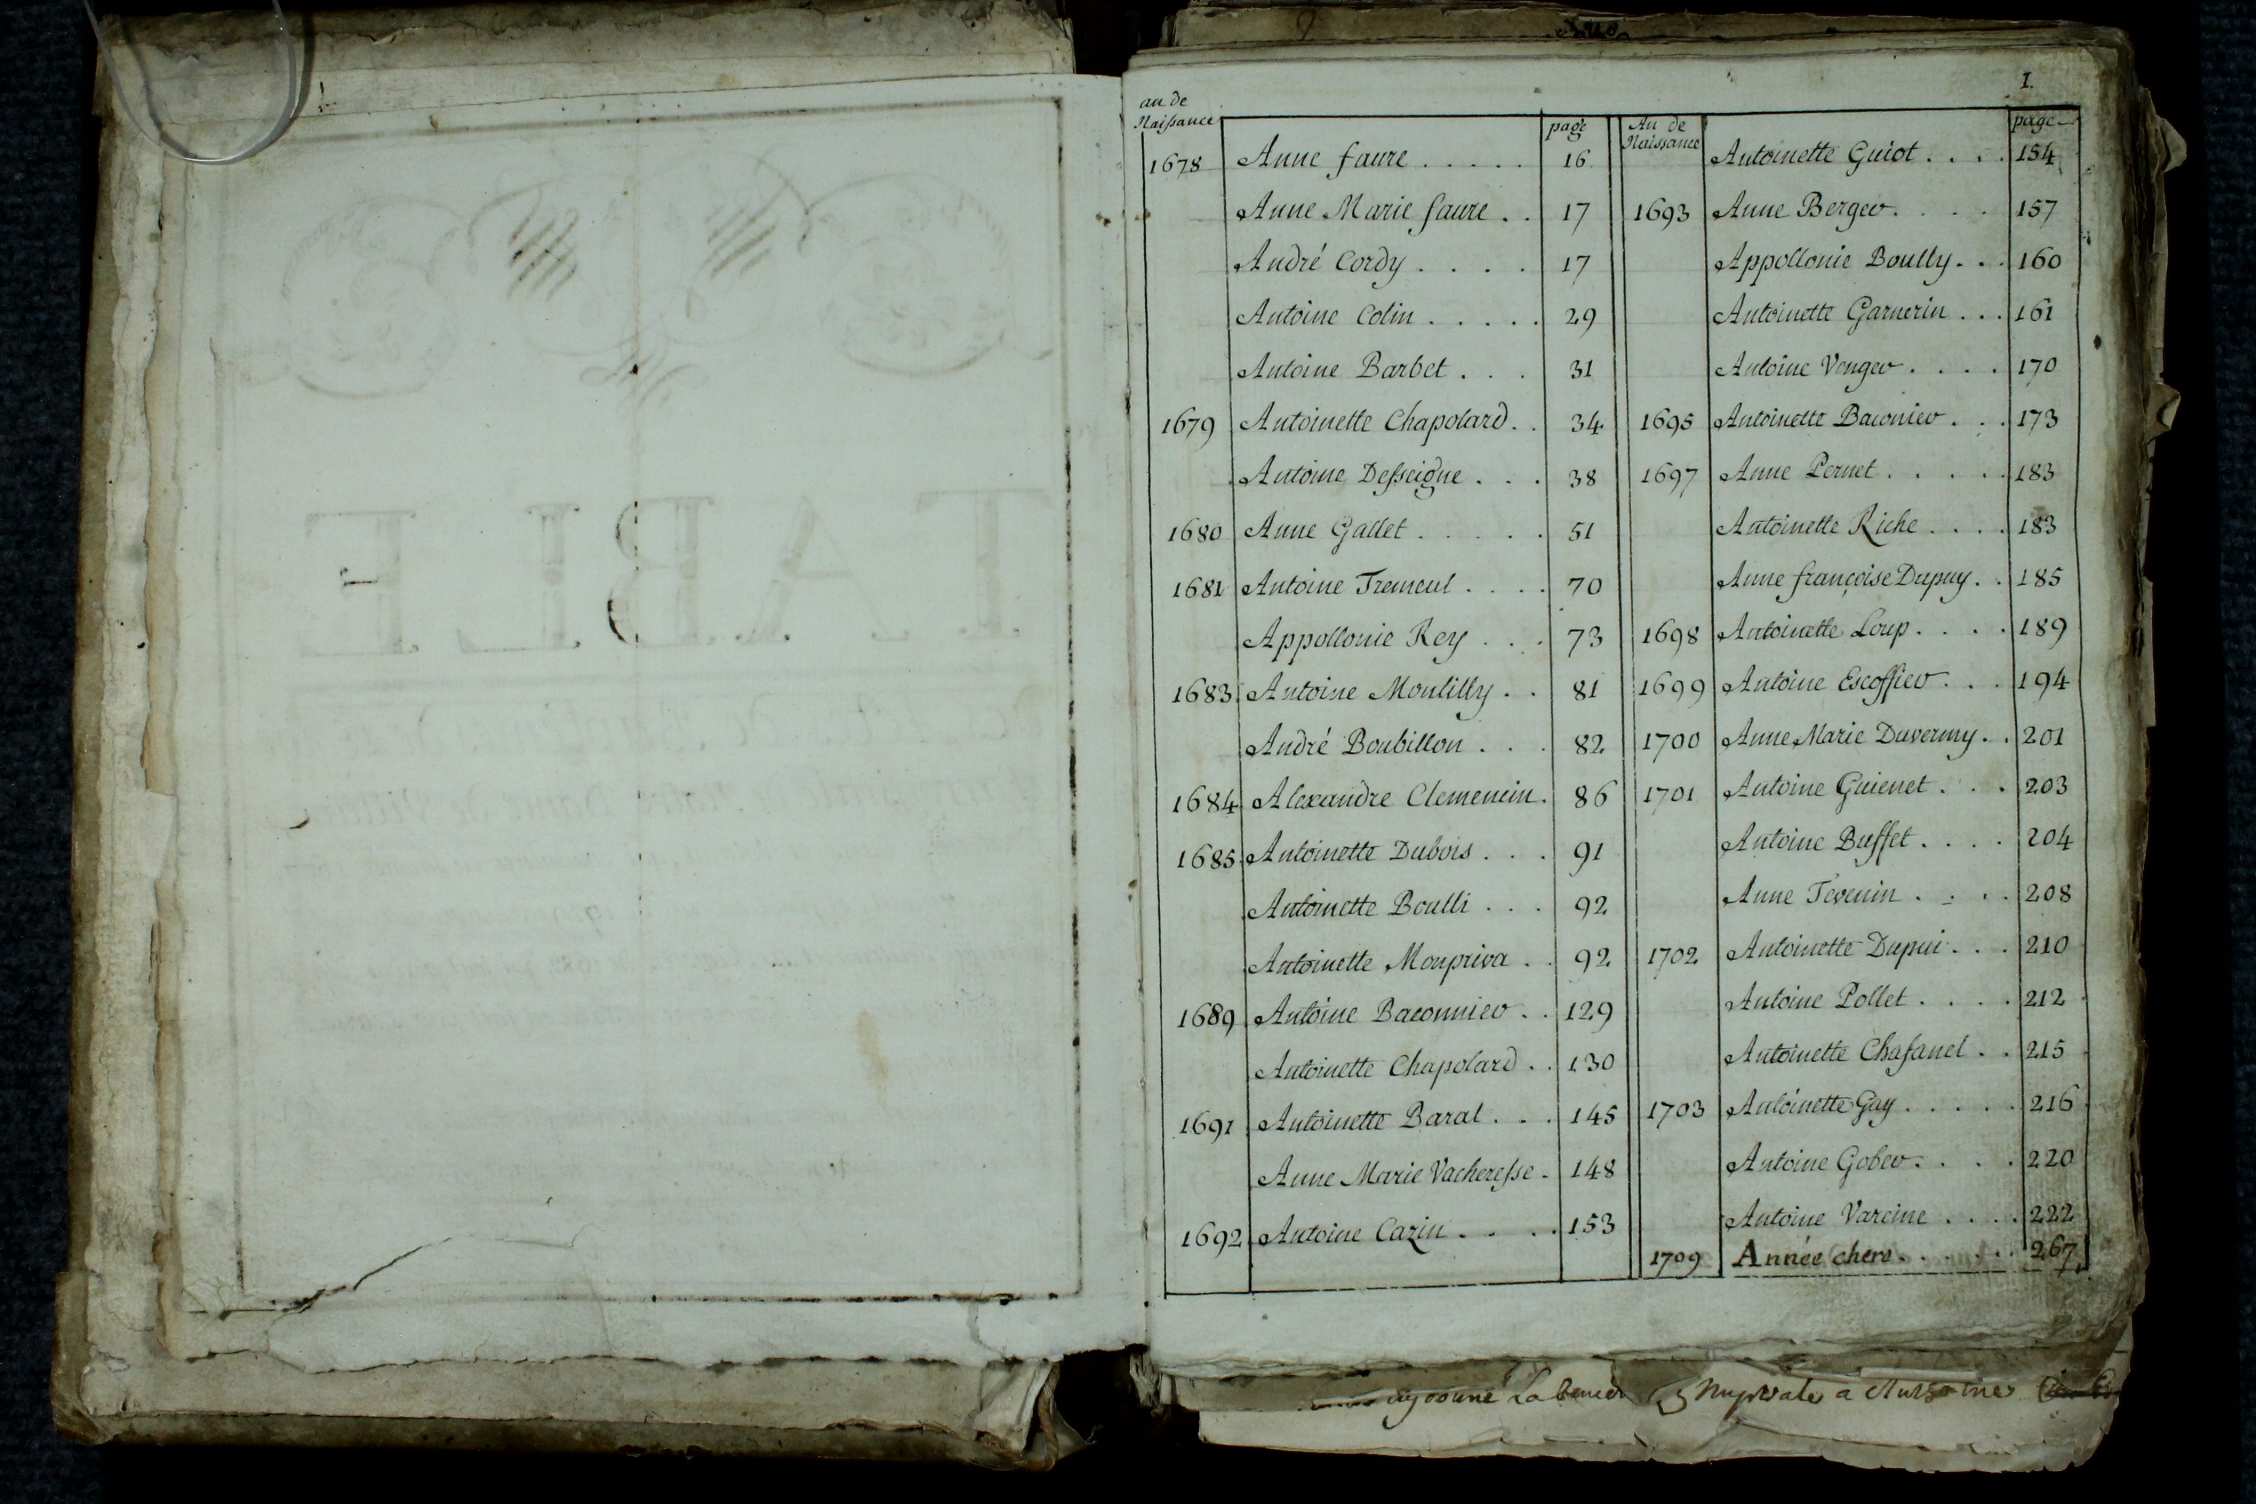 TABLE
I.
an de Naissance page
1678 Anne faure . . . . . 16
Anne Marie faure . . 17
André Cordy . . . . 17
Antoine Colin . . . . . 29
Antoine Barbet . . . 31
1679 Antoinette Chapolard . . 34
Antoine Desseigne . . . 38
1680 Anne Gallet . . . . . 51
1681 Antoine Tremeul . . . . 70
Appollonie Rey . . . 73
1683 Antoine Moulilly . . 81
André Boubillon . . . 82
1684 Alexandre Clemencin . 86
1685 Antoinette Dubois . . . 91
Antoinette Boulli . . . 92
Antoinette Monpriva . . 92
1689 Antoine Baconnier . . 129
Antoinette Chapolard . . 130
1691 Antoinette Baral . . . 145
Anne Marie Vacheresse . 148
1692 Antoine Cazin . . . . 153
An de Naissance page
Antoinette Guiot . . . . 154
1693 Anne Berger . . . . 157
Appollonie Boully . . . 160
Antoinette Garnerin . . . 161
Antoine Venger . . . . 170
1695 Antoinette Baconier . . . 173
1697 Anne Pernet . . . . . 183
Antoinette Riche . . . . 183
Anne françoise Dupuy . . 185
1698 Antoinette Loup . . . . 189
1699 Antoine Escoffier . . . 194
1700 Anne Marie Duverny . . 201
1701 Antoine Guienet . . . 203
Antoine Buffet . . . . 204
Anne Tevenin . . . . 208
1702 Antoinette Dupui . . . 210
Antoine Pollet . . . . 212
Antoinette Chafanel . . 215
1703 Antoinette Gay . . . . . 216
Antoine Gober . . . . 220
Antoine Varcine . . . . 222
1709 Année chere . . . . . . 267